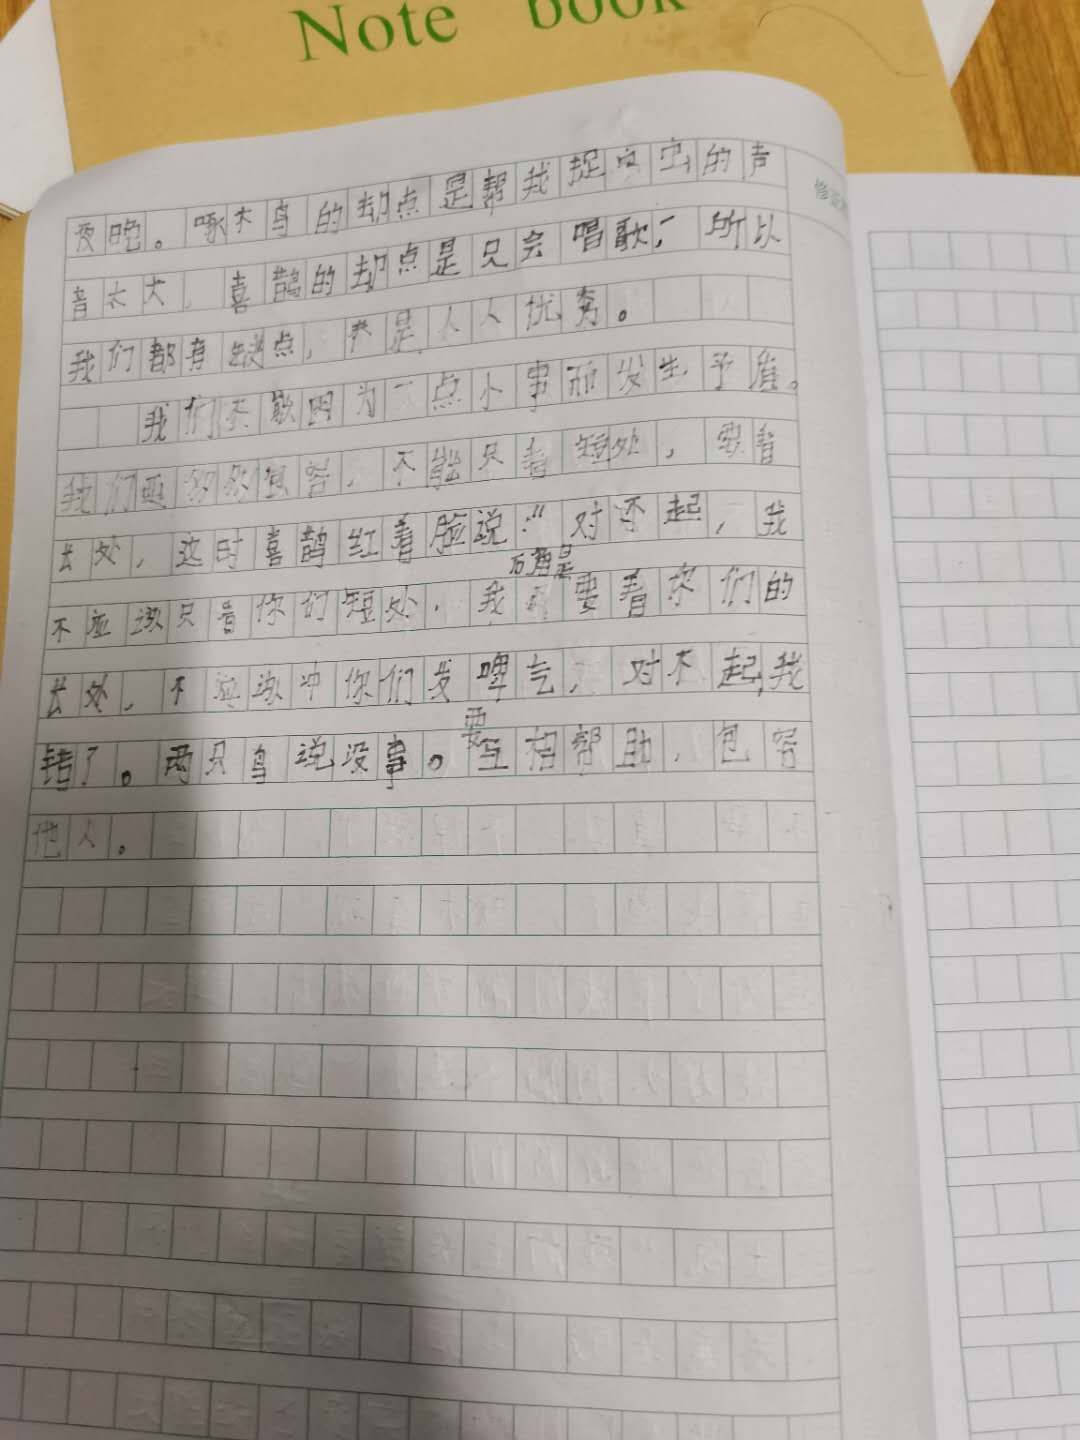 Note book
修改
夜晚。啄木鸟的却点是帮我捉害虫的声
音太大,喜鹊的却点是只会唱歌,所以
我们都有缺点,不是人人优秀。
我们不敢因为一点小事而发生矛盾。
我们要 容,不能只看短处,要看
长处,这时喜鹊红着脸说:"对不起,我
而是
不应该只看你们短处,我要看你们的
长处,不应该冲你们发啤气,对不起,我
要
错了。两只鸟说没事。互相帮助,包容
他人。